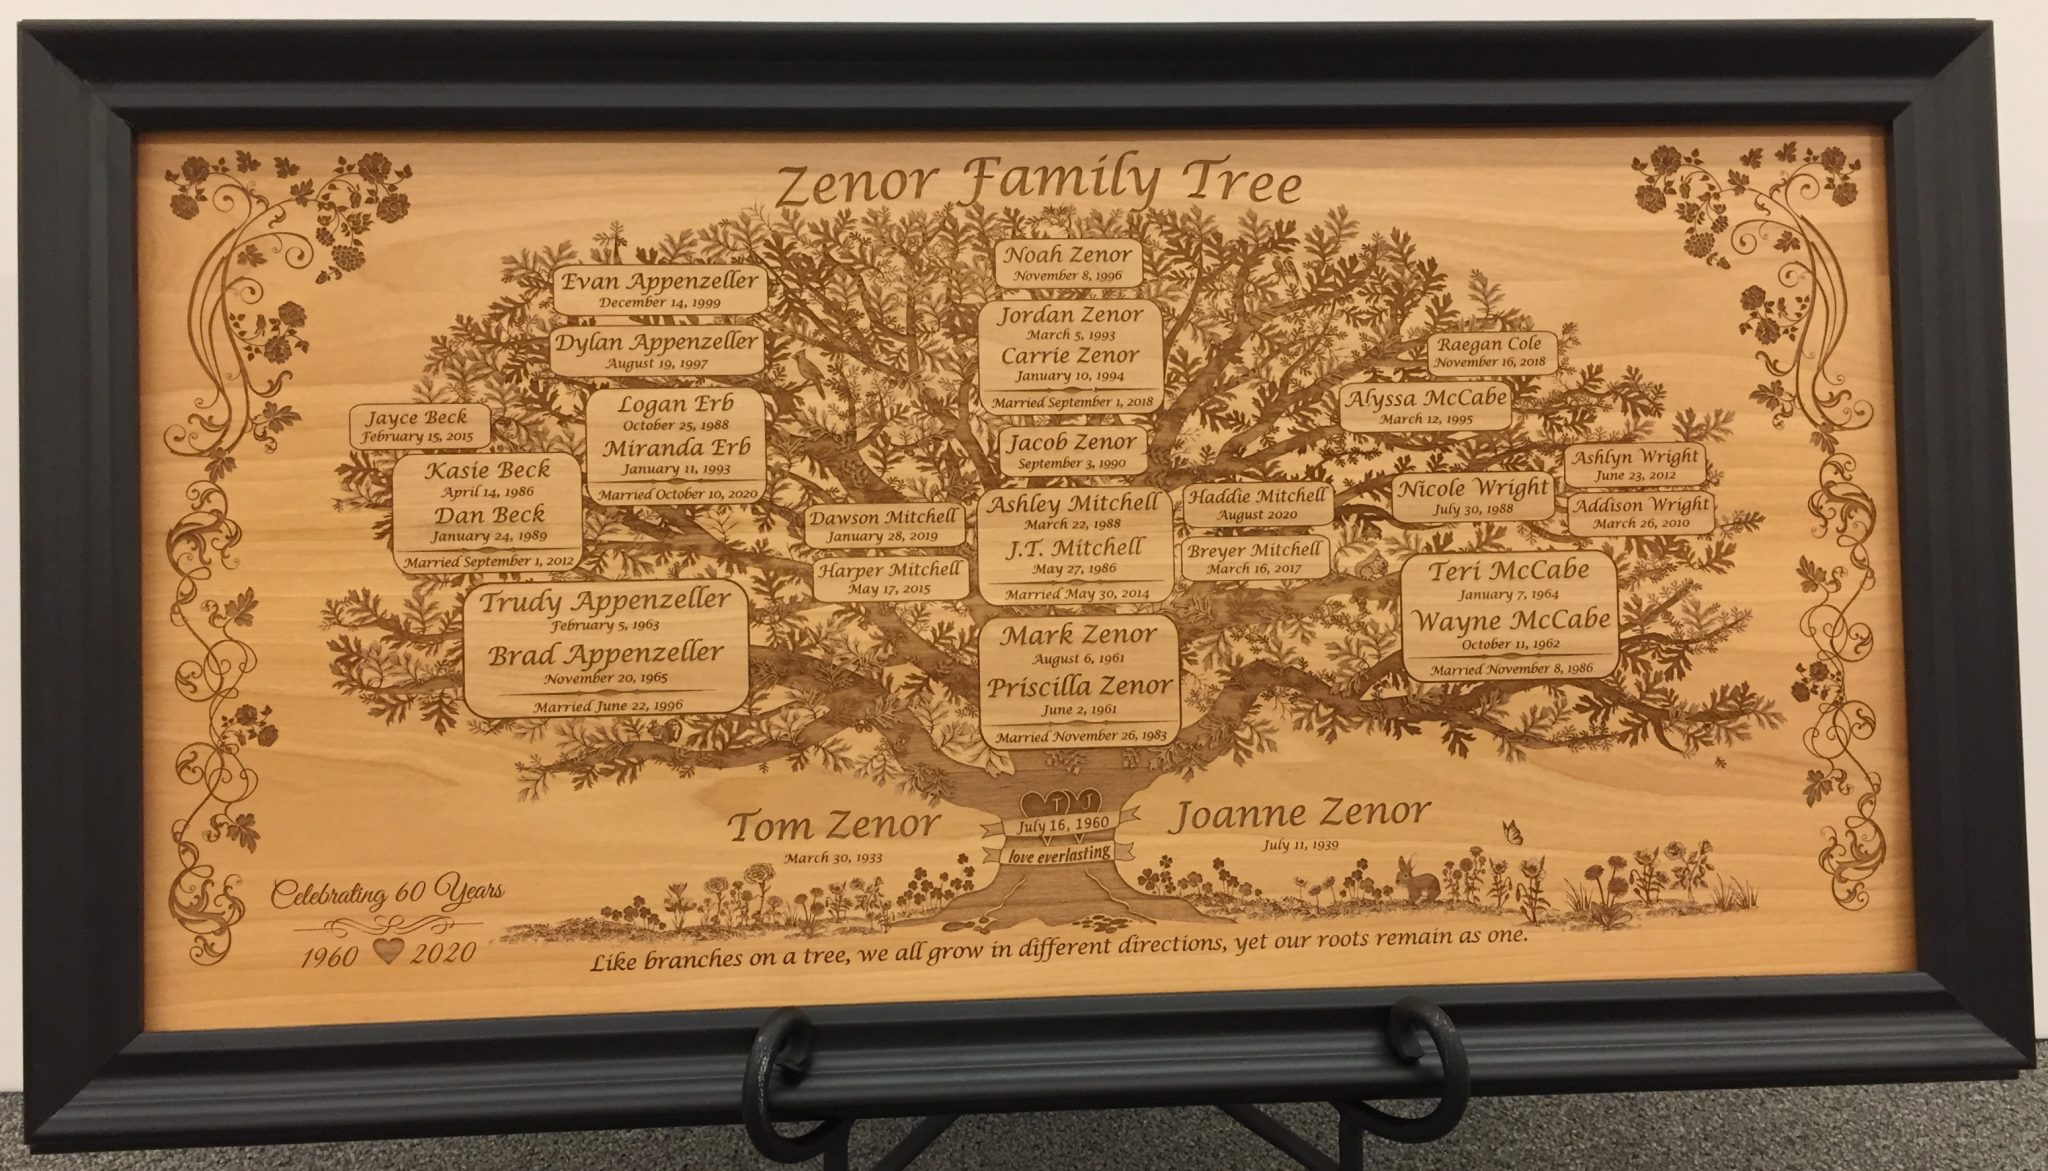 Zenor Family Tree
Noah Zenor
November 8, 1996
Evan Appenzeller
December 14, 1999
Jordan Zenor
March 5, 1993
Carrie Zenor
January 10, 1994
Married September 1, 2018
Dylan Appenzeller
August 19, 1997
Raegan Cole
November 16, 2018
Alyssa McCabe
March 12, 1995
Logan Erb
October 25, 1988
Miranda Erb
January 11, 1993
Married October 10, 2020
Jayce Beck
February 15, 2015
Jacob Zenor
September 3, 1990
Ashlyn Wright
June 23, 2012
Kasie Beck
April 14, 1986
Dan Beck
January 24, 1989
Married September 1, 2012
Dawson Mitchell
January 28, 2019
Ashley Mitchell
March 22, 1988
J.T. Mitchell
May 27, 1986
Married May 30, 2014
Haddie Mitchell
August 2020
Nicole Wright
July 30, 1988
Addison Wright
March 26, 2010
Harper Mitchell
May 17, 2015
Breyer Mitchell
March 16, 2017
Teri McCabe
January 7, 1964
Wayne McCabe
October 11, 1962
Married November 8, 1986
Trudy Appenzeller
February 5, 1963
Brad Appenzeller
November 20, 1965
Married June 22, 1996
Mark Zenor
August 6, 1961
Priscilla Zenor
June 2, 1961
Married November 26, 1983
T J
July 16, 1960
love everlasting
Tom Zenor
March 30, 1933
Joanne Zenor
July 11, 1939
Celebrating 60 Years
1960 2020
Like branches on a tree, we all grow in different directions, yet our roots remain as one.